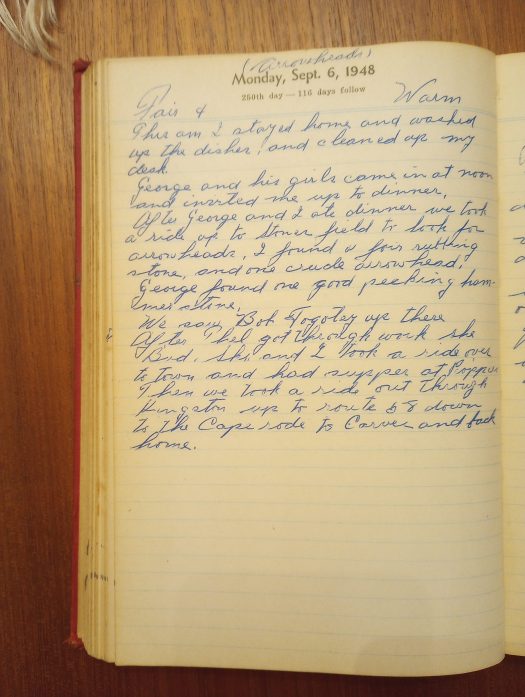 (Arrowheads)
Monday, Sept. 6, 1948
250th day — 116 days follow
Fair & Warm
This am I stayed home and washed
up the dishes, and cleaned up my
desk.
George and his girls came in at noon
and invited me up to dinner.
After George and I ate dinner we took
a ride up to Stoner field to look for
arrowheads, I found a four rubbing
stone, and one crude arrowhead,
George found one good pecking ham-
mer stone.
We saw Bob up there
After hel got through work she
Bud, Shi and I took a ride over
to town and had supper at
Then we took a ride out through
Kingston up to route 58 down
to the Cape rode to Carver and back
home.